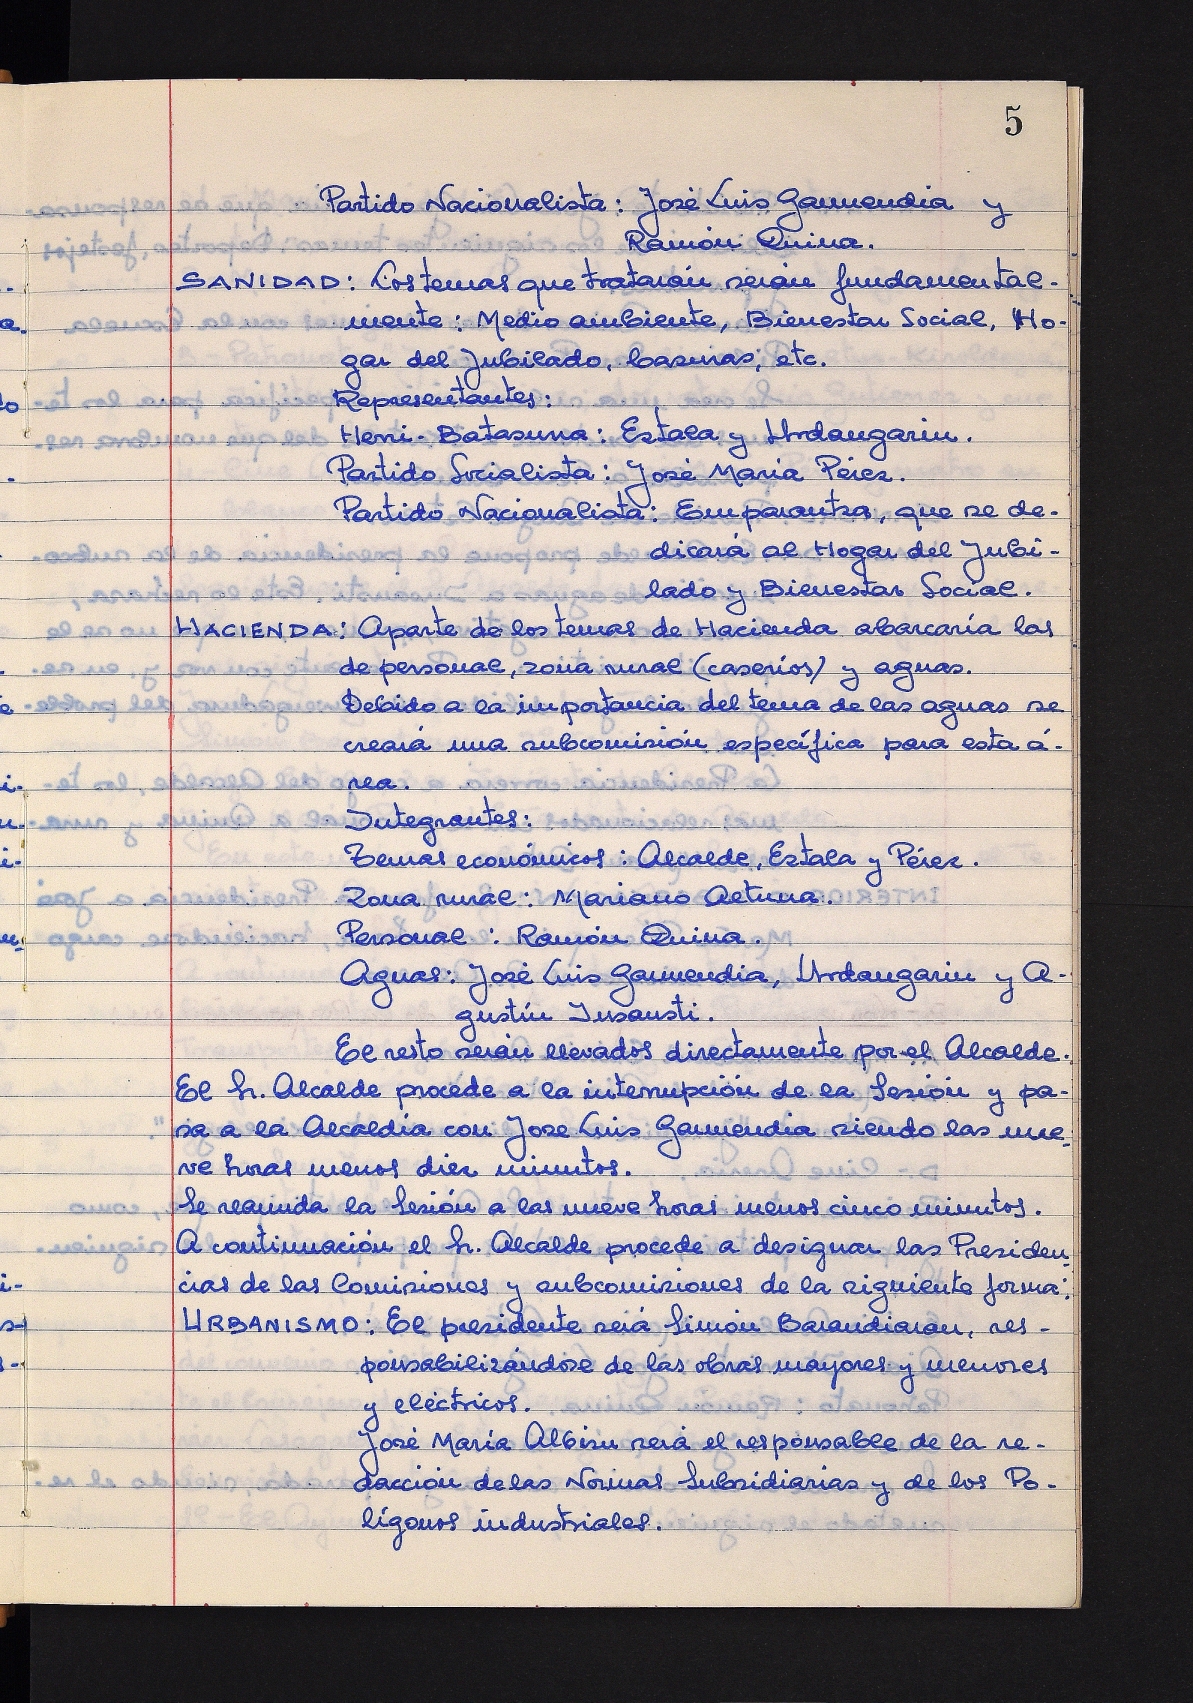 5
Partido Nacionalista: José Luis Garmendia y
Ramón Quina.
SANIDAD: Los temas que tratarán serán fundamental-
mente: Medio ambiente, Bienestar Social, Ho-
gar del Jubilado, basuras, etc.
Representantes:
Herri-Batasuna: Eztala y Urdangarin.
Partido Socialista: José María Pérez.
Partido Nacionalista: Emparantza, que se de-
dicará al Hogar del Jubi-
lado y Bienestar Social.
HACIENDA: Aparte de los temas de Hacienda abarcaría las
de personal, zona rural (caseríos) y aguas.
Debido a la importancia del tema de las aguas se
creará una subcomisión específica para esta á-
rea.
Integrantes:
Temas económicos: Alcalde, Eztala y Pérez.
Zona rural: Mariano Aetuna.
Personal: Ramón Quina.
Aguas: José Luis Garmendia, Urdangarin y A-
gustín Insausti.
El resto serán llevados directamente por el Alcalde.
El Sr. Alcalde procede a la interrupción de la Sesión y pa-
sa a la Alcaldía con Jose Luis Garmendia siendo las nue-
ve horas menos diez minutos.
Se reanuda la Sesión a las nueve horas menos cinco minutos.
A continuación el Sr. Alcalde procede a designar las Presiden-
cias de las Comisiones y subcomisiones de la siguiente forma:
URBANISMO: El presidente será Simón Barandiaran, res-
ponsabilizándose de las obras mayores y menores
y eléctricos.
José María Albizu será el responsable de la re-
dacción de las Normas Subsidiarias y de los Po-
lígonos industriales.